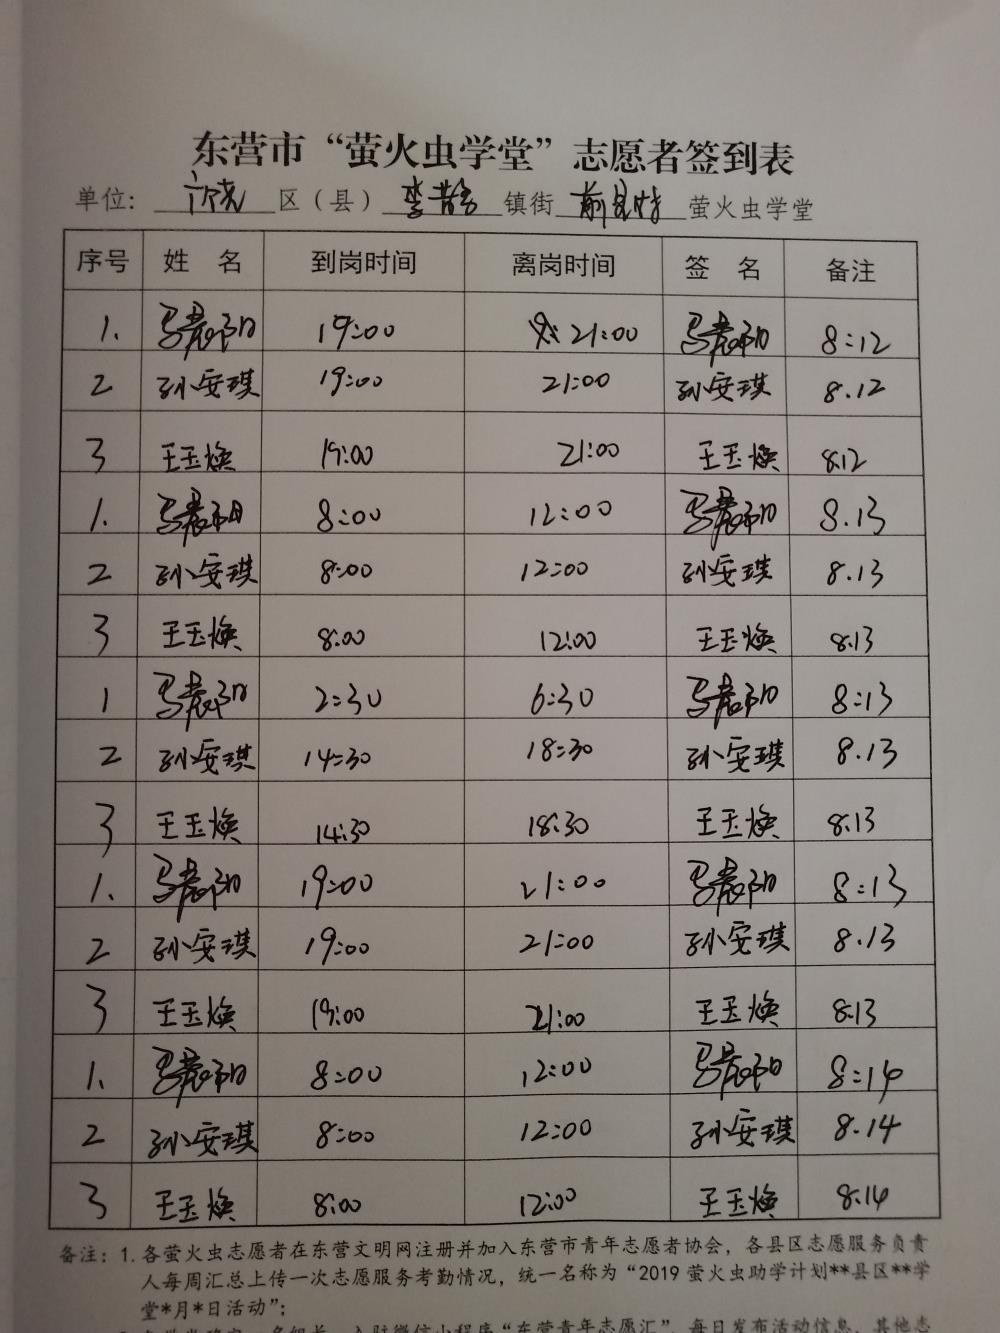 东营市“萤火虫学堂”志愿者签到表
单位： 区（县） 镇街 萤火虫学堂
序号 姓 名 到岗时间 离岗时间 签 名 备注
1. 马晨阳 19:00 21:00 马晨阳 8:12
2 孙安琪 19:00 21:00 孙安琪 8.12
3 王玉焕 19:00 21:00 王玉焕 8.12
1. 马晨阳 8:00 12:00 马晨阳 8.13
2 孙安琪 8:00 12:00 孙安琪 8.13
3 王玉焕 8:00 12:00 王玉焕 8.13
1 马晨阳 2:30 6:30 马晨阳 8:13
2 孙安琪 14:30 18:30 孙安琪 8.13
3 王玉焕 14:30 18:30 王玉焕 8.13
1. 马晨阳 19:00 21:00 马晨阳 8:13
2 孙安琪 19:00 21:00 孙安琪 8.13
3 王玉焕 19:00 21:00 王玉焕 8.13
1. 马晨阳 8:00 12:00 马晨阳 8:14
2 孙安琪 8:00 12:00 孙安琪 8.14
3 王玉焕 8:00 12:00 王玉焕 8.14
备注：1.各萤火虫志愿者在东营文明网注册并加入东营市青年志愿者协会，各县区志愿服务负责
人每周汇总上传一次志愿服务考勤情况，统一名称为“2019萤火虫助学计划**县区**学
堂*月*日活动”；
名组长，入驻微信小程序“东营青年志愿汇”，每日发布活动信息，其他志